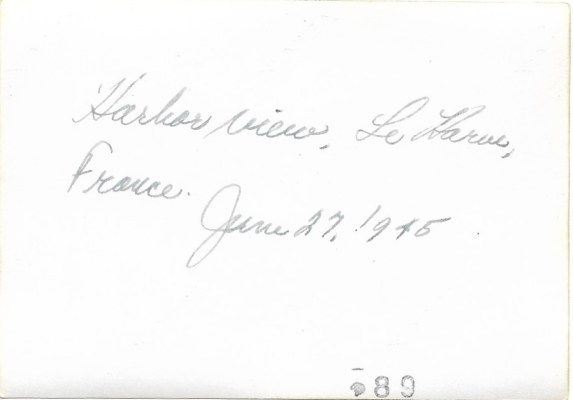 Harbor view, Le Harve,
France.
June 27, 1945
89